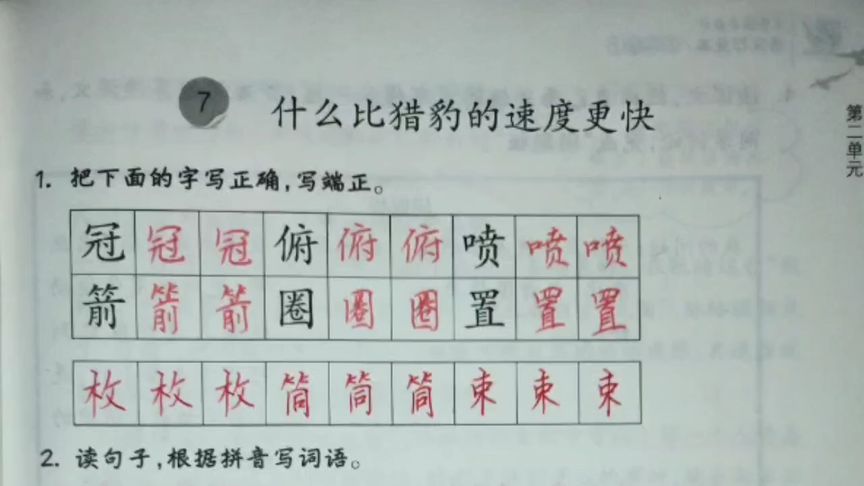 7 什么比猎豹的速度更快
第二单元
1. 把下面的字写正确,写端正。
冠 冠 冠 俯 俯 俯 喷 喷 喷
箭 箭 箭 圈 圈 圈 置 置 置
枚 枚 枚 筒 筒 筒 束 束 束
2. 读句子,根据拼音写词语。